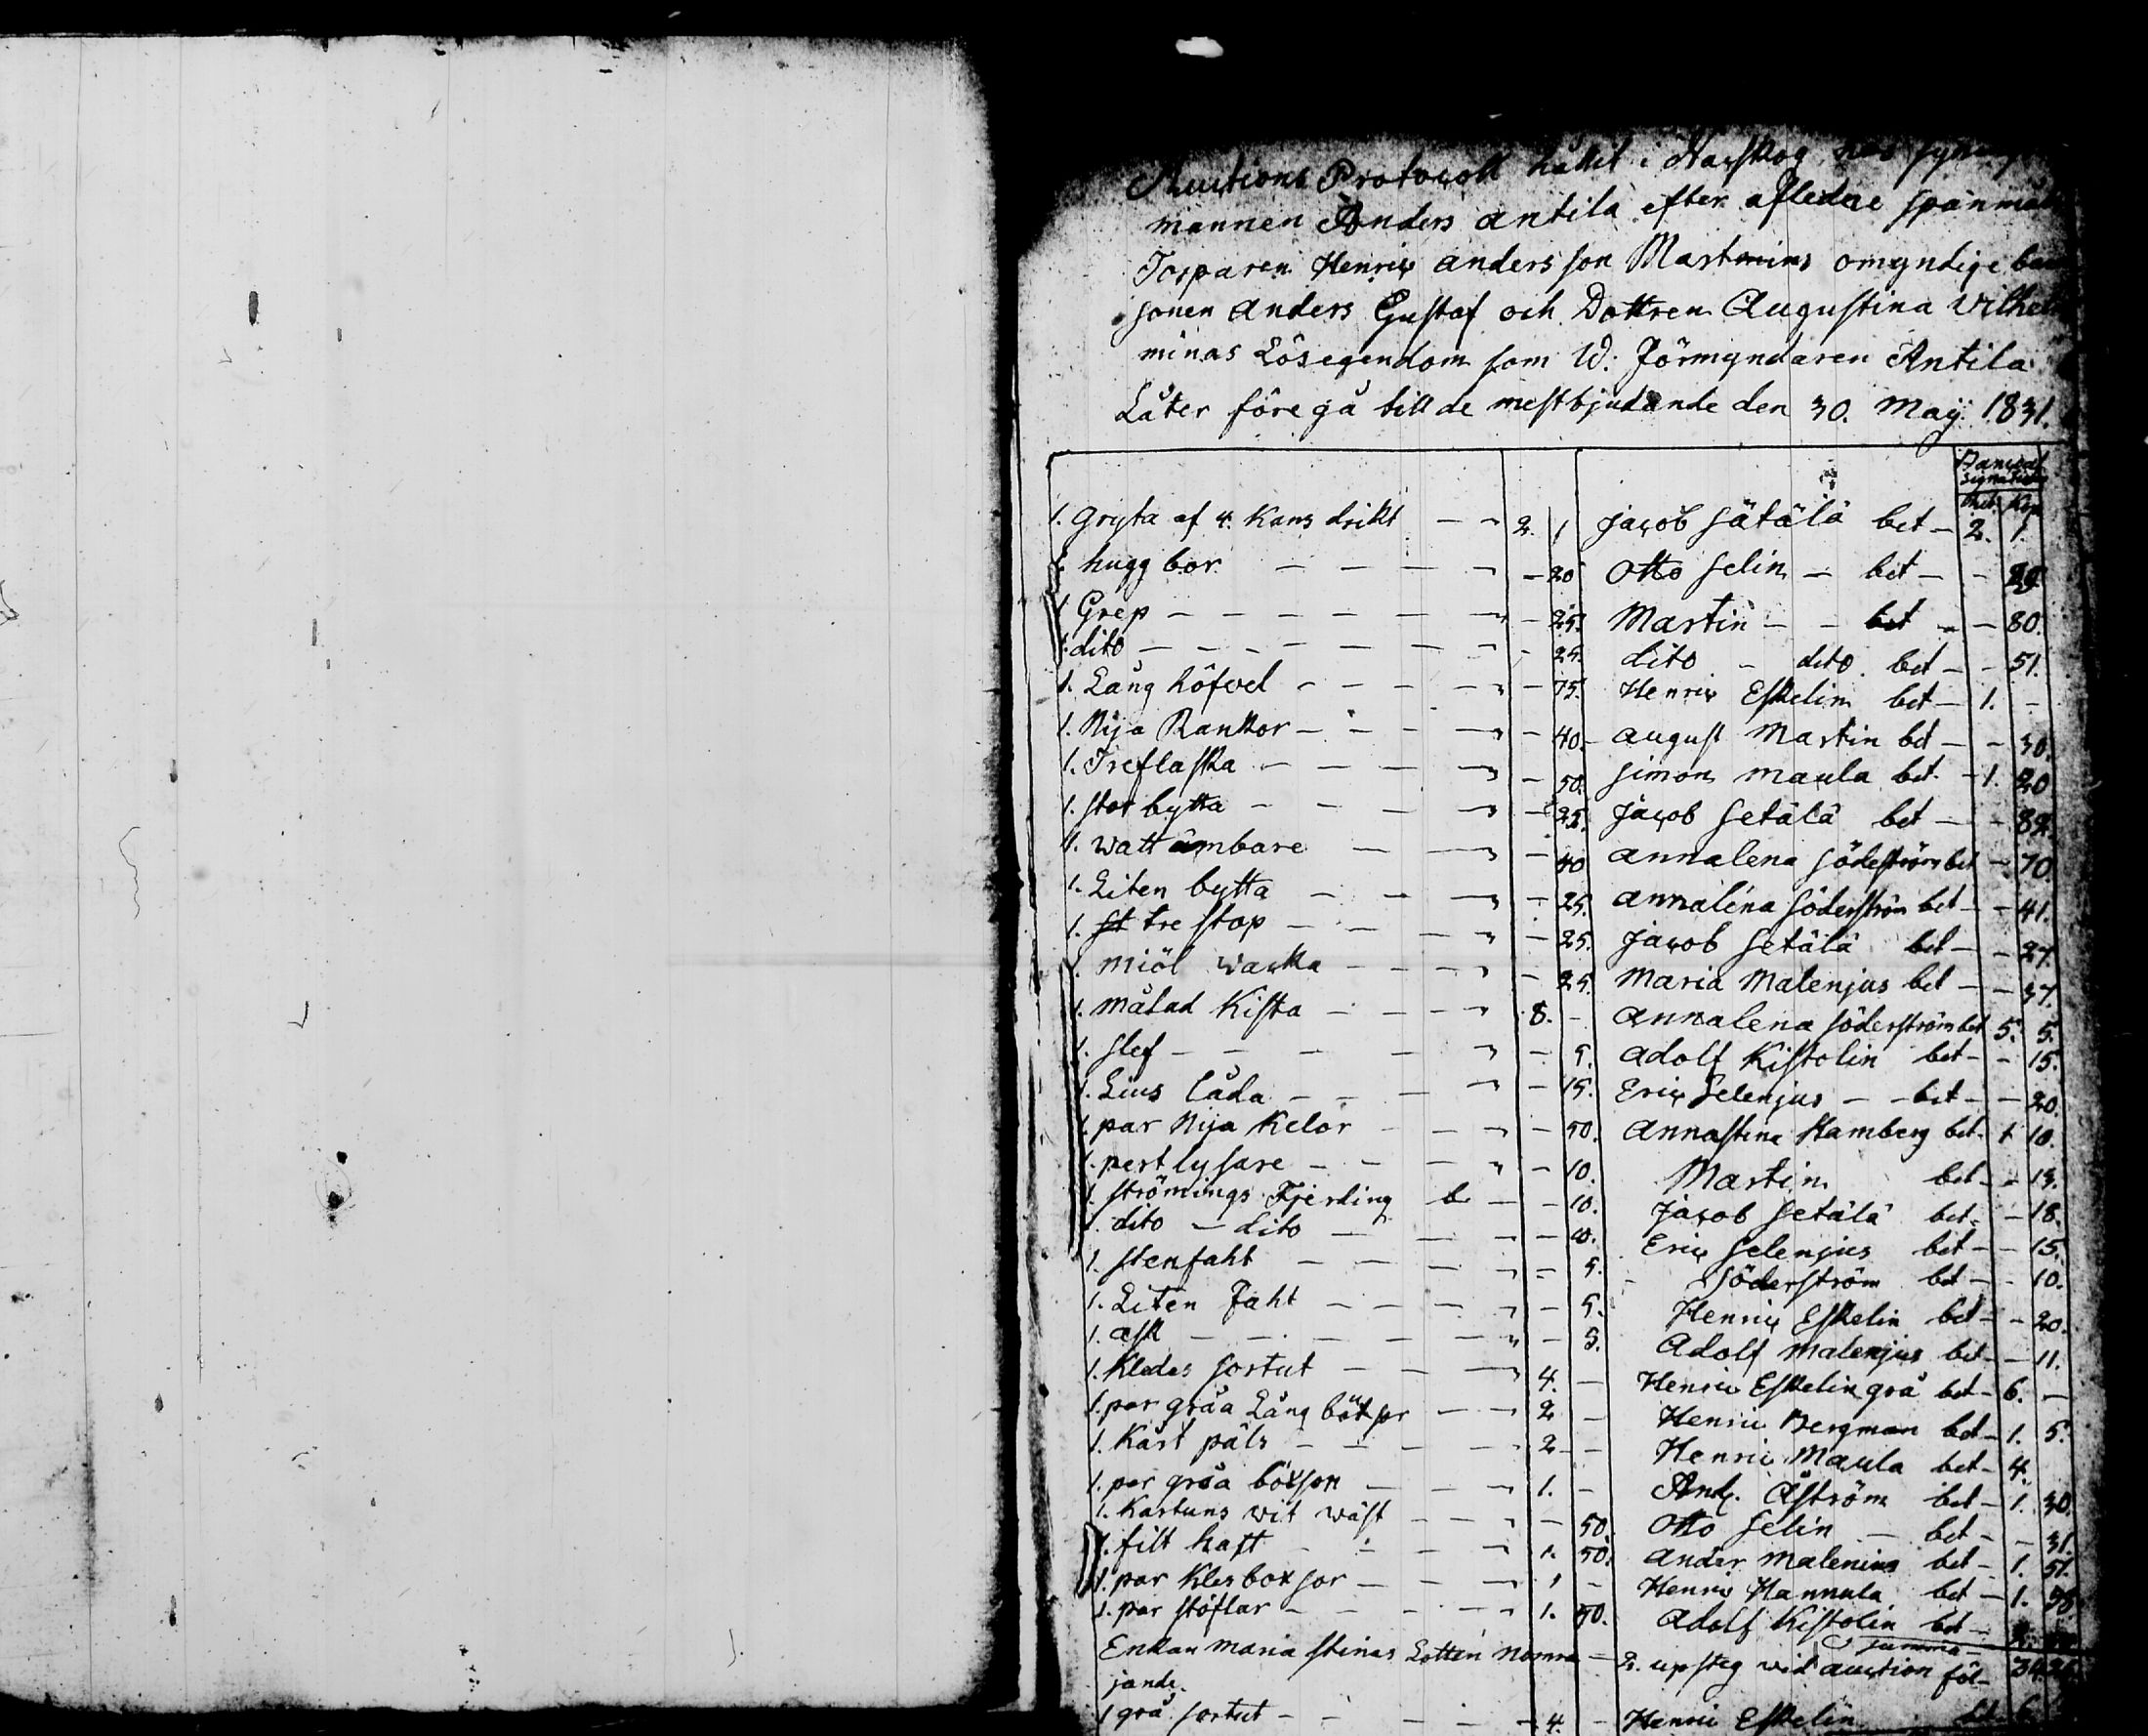 Auctions Protocoll hållit i Harskog hos
mannen Anders antila efter afledne spanmåls
Torparen Henric anders son Martinins omyndige
sonen anders Gustaf och Dottren Augustina Vilhel
minas Lösegendom som W. Förmyndaren Antila
Låter föregå till de mestbjudande den 30. Maÿ. 1831.
1. Gryta af 4. Kans drikt — 2. 1 Jacob Sätälä bet — 2. 1.
1. hugg bor — — 20 Otto Selin — bet —
1. Grep — — 25. Martin — bet — — 80.
1. dito — — 25. dito — dito bet — — 51.
1. Lång höfvel — — 75. Henric Eskelin bet — 1. —
1. Nija Rankor — — 40. august Martin bet — — 30.
1. Treflaska — — 50. Simon maula bet — 1. 20
1. stor bytta — — 25. Jacob Setälä bet — — 82.
1. watt ämbare — — 40 annalena Södeström bet — 70.
1. Liten bytta — — 25. annalena Söderström bet — — 41.
1. tre stop — — 25. Jacob Setälä bet — — 27.
1. miöl wacka — — 25. Maria Malenjus bet — — 37.
1. målad Kista — 8. — annalena Söderström bet 5. 5.
1. slef — — 5. adolf Kistolin bet — — 15.
1. Lius låda — — 15. Eric Selenjus — bet — — 20.
1. par Nija Kelor — — 50. annastina Hamberg bet. 1 10.
1. pert lysare — — 10. Martin bet — — 13.
1. strömings Fjerding — — 10. Jacob Setälä bet — — 18.
1. dito — dito — — 10. Eric Selenjus bet — — 15.
1. stenfaht — — 5. Söderström bet — — 10.
1. Liten Faht — — 5. Henric Eskelin bet — — 20.
1. ask — — 5. Adolf malenjus bet — — 11.
1. Kledes sortut — 4. — Henric Eskelin grå bet — 6. —
1. par gråa Lång böxsor — 2 — Henric Bergman bet — 1. 5.
1. Kast päls — 2 — Henric Maula bet — 4.
1. par gråa böxsor — 1. — And. Åström bet — 1. 30
1. Kartuns wit wäst — — 50. Otto Selin — bet — — 31.
1. filt hatt — 1. 50. ander malenius bet — 1. 51.
1. par Kles boxsor — 1 — Henric Hannula bet — 1. 38
1. par stöflar — 1. 50. Adolf Kistolin bet —
Summa
Enkan maria stinas Lotten — upsteg wid auction föl-
jande.
1 grå sortut — 4. — Henric Eskelin